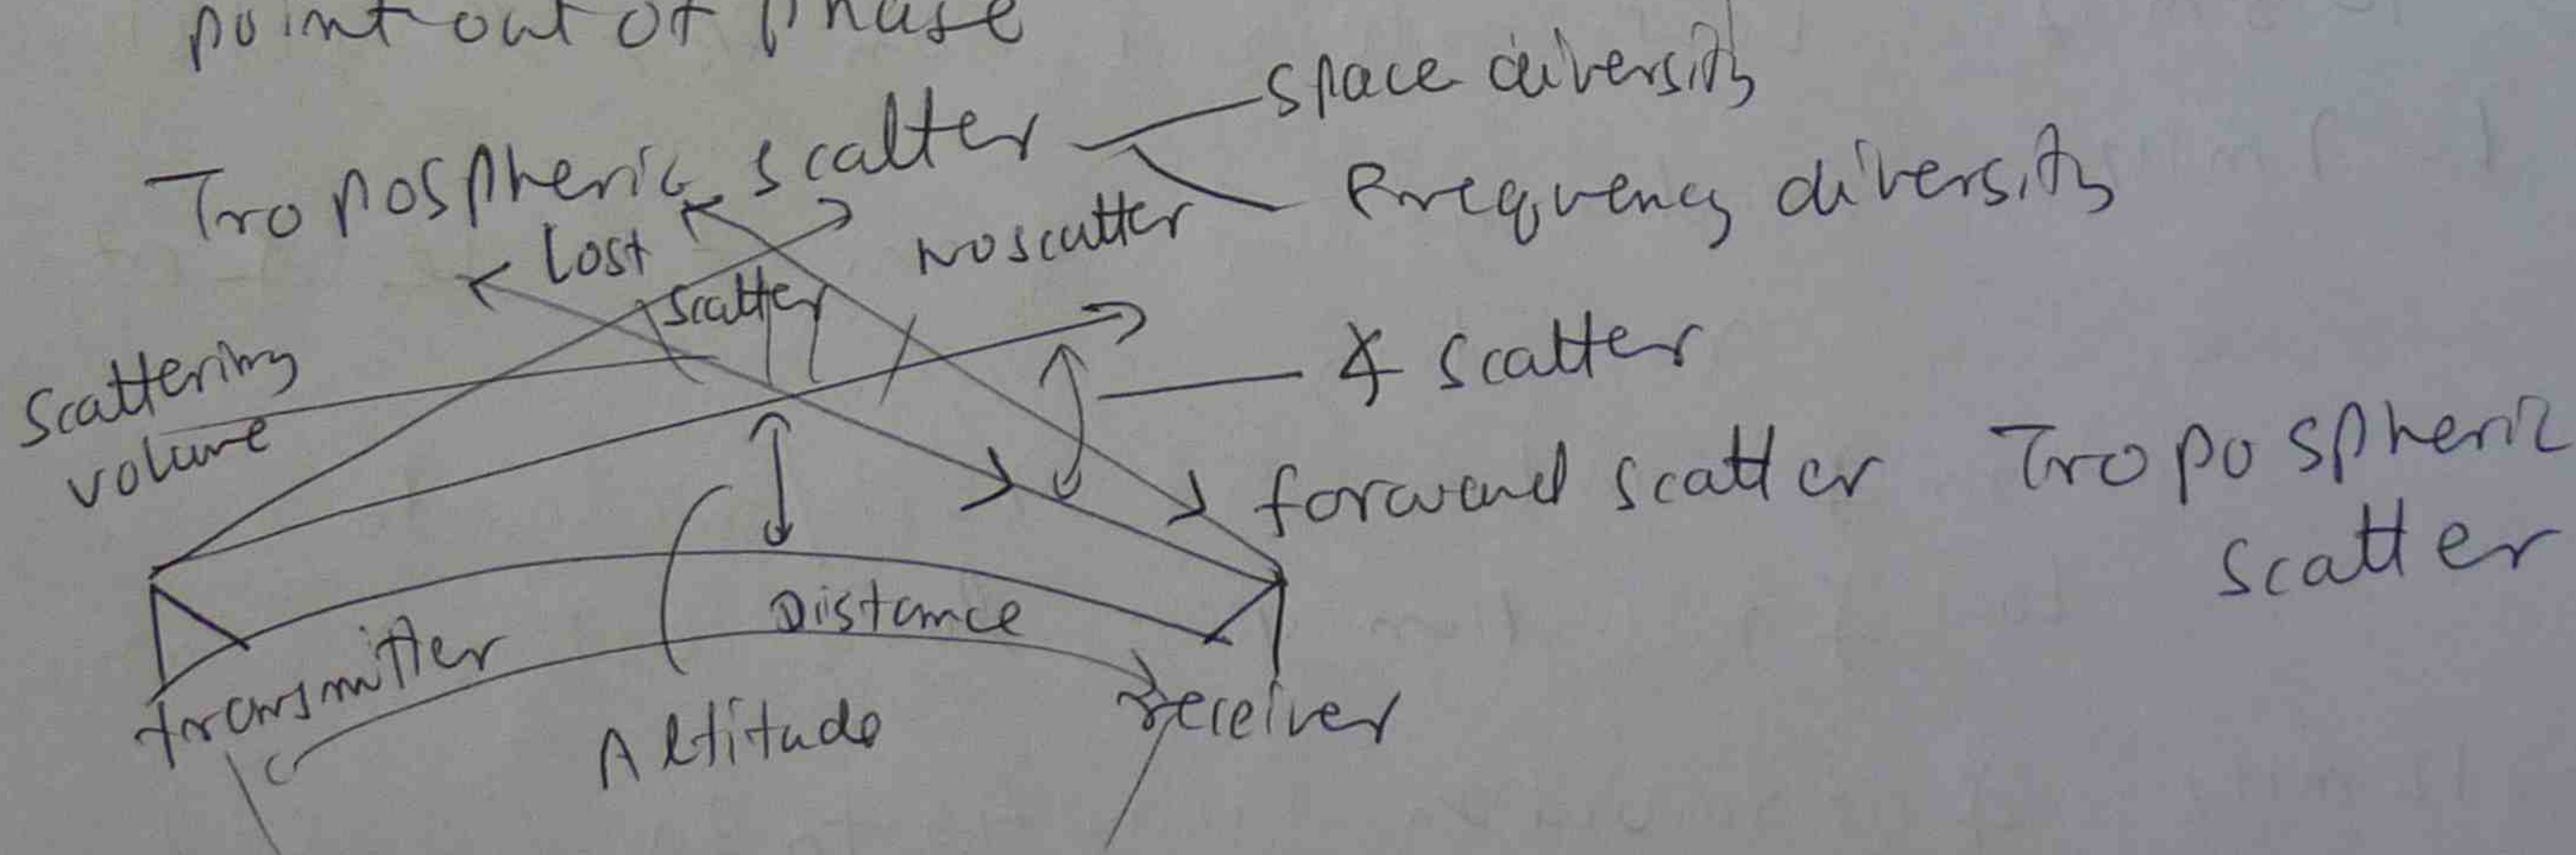 point out of phase
Tropospheric scatter
space diversity
Frequency diversity
Lost
scatter
No scatter
Scattering
volume
∡ scatter
forward scatter
Tropospheric
scatter
Distance
transmitter
Altitude
receiver